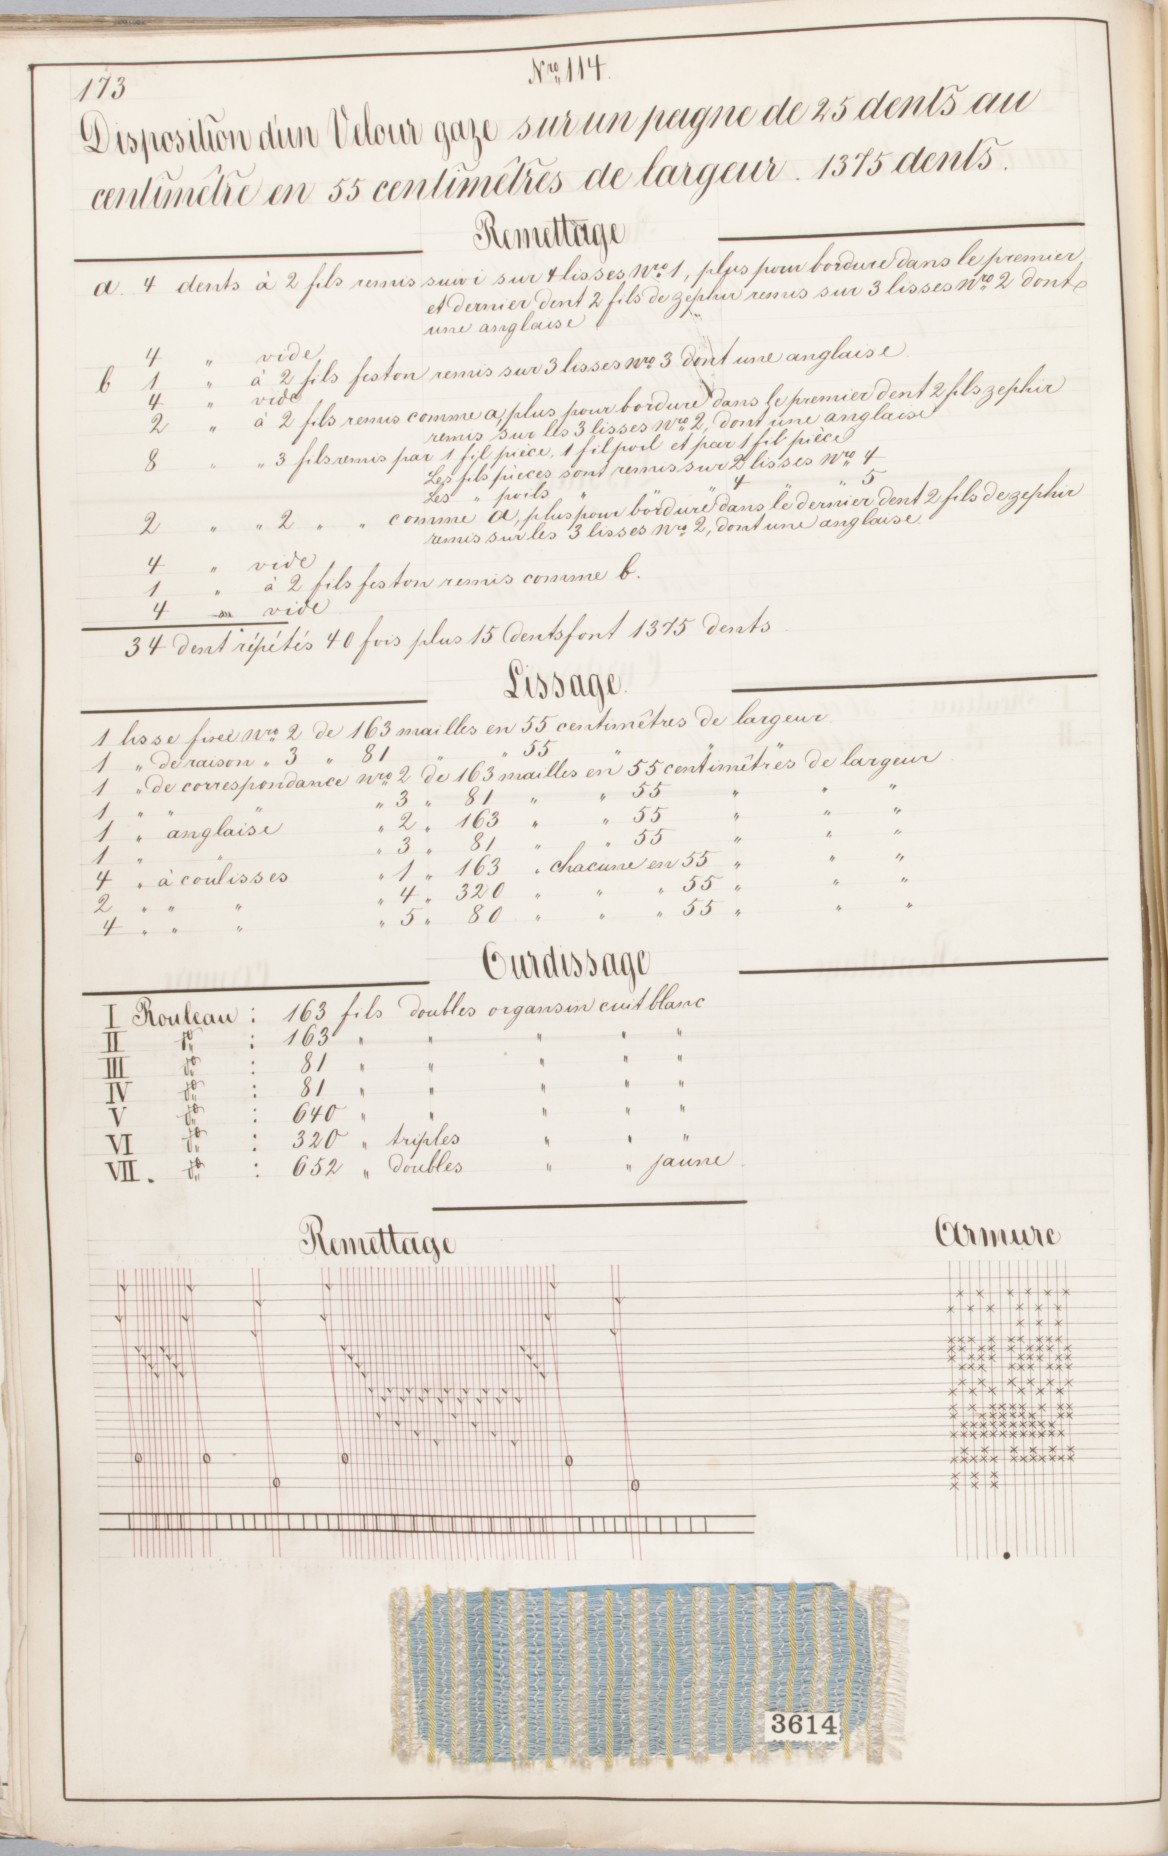 173
Nro 114.
Disposition d'un Velour gaze sur un pagne de 25 dents au
centimêtre en 55 centimêtres de largeur. 1375 dents.
Remettage
a. 4 dents à 2 fils remis suivi sur 4 lisses Nro 1, plus pour bordure dans le premier
et dernier dent 2 fils de zephir remis sur 3 lisses Nro 2 dont
une anglaise
4 " vide
b 1 " à 2 fils feston remis sur 3 lisses Nro 3 dont une anglaise.
4 " vide
2 " à 2 fils remis comme a, plus pour bordure dans le premier dent 2 fils zephir
remis sur lls 3 lisses Nro 2, dont une anglaise
8 " " 3 fils remis par 1 fil pièce, 1 fil poil et par 1 fil pièce
Les fils pièces sont remis sur 2 lisses Nro 4
Les " poils " " " 4 " " 5
2 " " 2 " " comme a, plus pour bordure dans le dernier dent 2 fils de zephir
remis sur les 3 lisses Nro 2, dont une anglaise.
4 " vide
1 " à 2 fils feston remis comme b.
4 " vide
34 dent répétés 40 fois plus 15 dents font 1375 dents
Lissage.
1 lisse fixe Nro 2 de 163 mailles en 55 centimêtres de largeur
1 " de raison " 3 " 81 " " 55 " " "
1 " de correspondance Nro 2 de 163 mailles en 55 centimêtres de largeur
1 " " " " 3 " 81 " " 55 " " "
1 " anglaise " 2 " 163 " " 55 " " "
1 " " " 3 " 81 " " 55 " " "
4 " à coulisses " 1 " 163 " chacune en 55 " " "
2 " " " " 4 " 320 " " " 55 " " "
4 " " " " 5 " 80 " " " 55 " " "
Ourdissage
I Rouleau : 163 fils doubles organsin cuit blanc
II do : 163 " " " " "
III do : 81 " " " " "
IV do : 81 " " " " "
V do : 640 " " " " "
VI do : 320 " triples " " "
VII. do : 652 " doubles " " jaune.
Remettage
Armure
3614